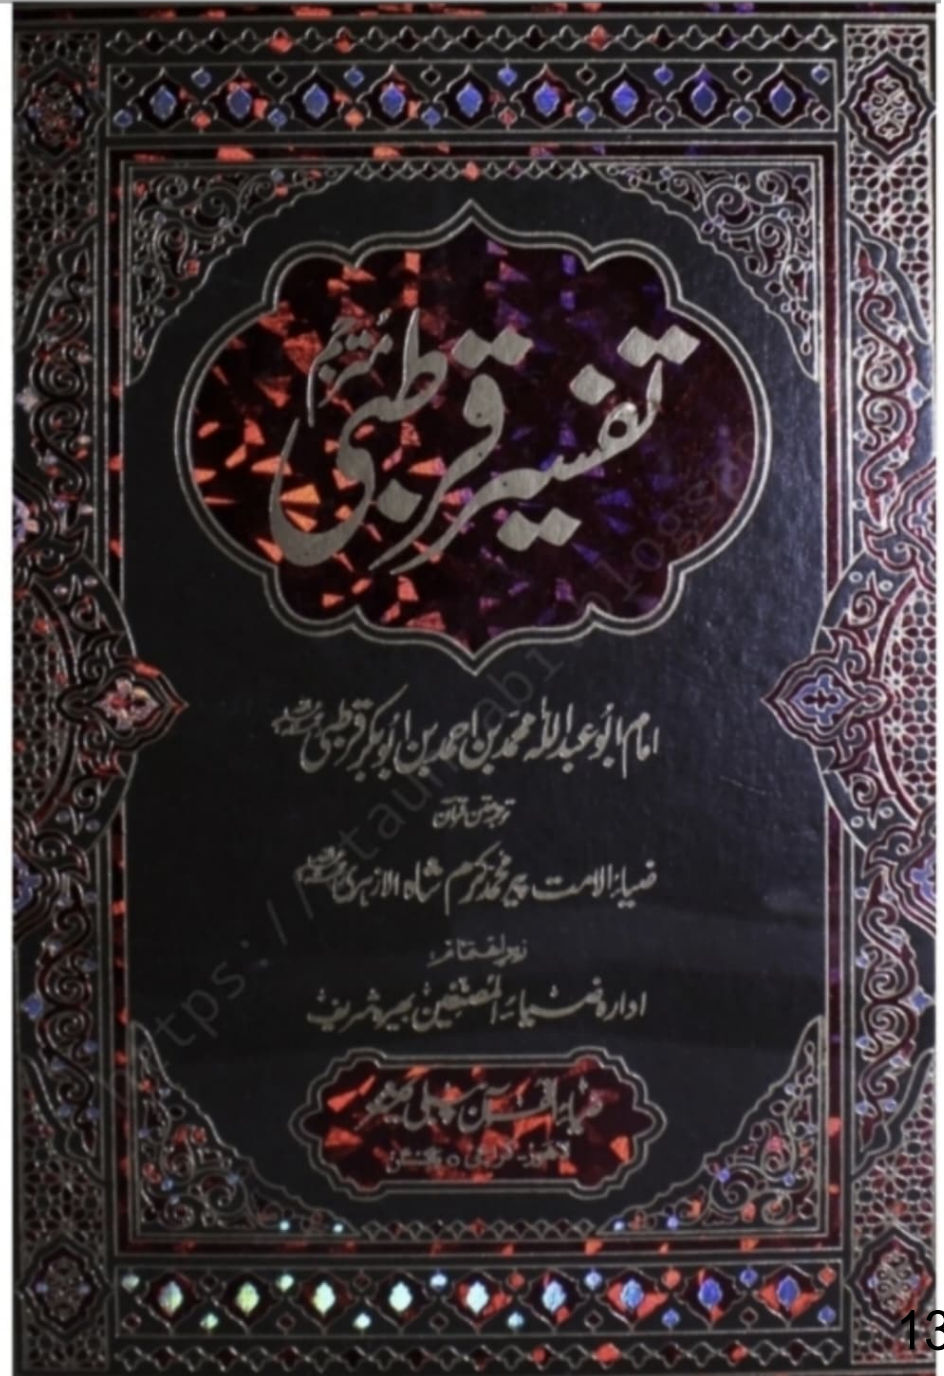 تفسیر قرطبی
مترجم
امام ابو عبد اللہ محمد بن احمد بن ابوبکر قرطبی
ترجمہ متن قرآن
ضیاء الامت پیر محمد کرم شاہ الازہری
زیر اہتمام
ادارہ ضیاء المصنفین بھیرہ شریف
ضیاء القرآن پبلی کیشنز
لاہور - کراچی ۔ پاکستان
13